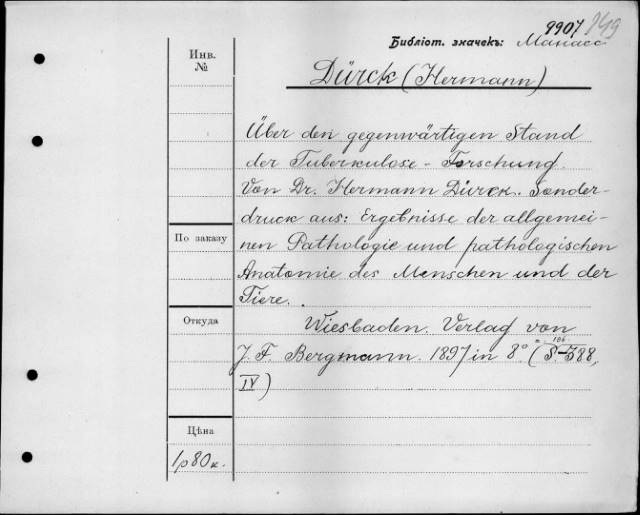 9907 149
Библіот. значекъ: Манасс
Инв.
№
Dürck (Hermann)
Über den gegenwärtigen Stand
der Tuberkulose - Forschung.
Von Dr. Hermann Dürck. Sonder-
druck aus: Ergebnisse der allgemei-
По заказу
nen Pathologie und pathologischen
Anatomie des Menschen und der
Tiere.
Откуда
Wiesbaden. Verlag von
J. F. Bergmann. 1897 in 8° (S.-388,
106
IV)
Цѣна
1р80к.